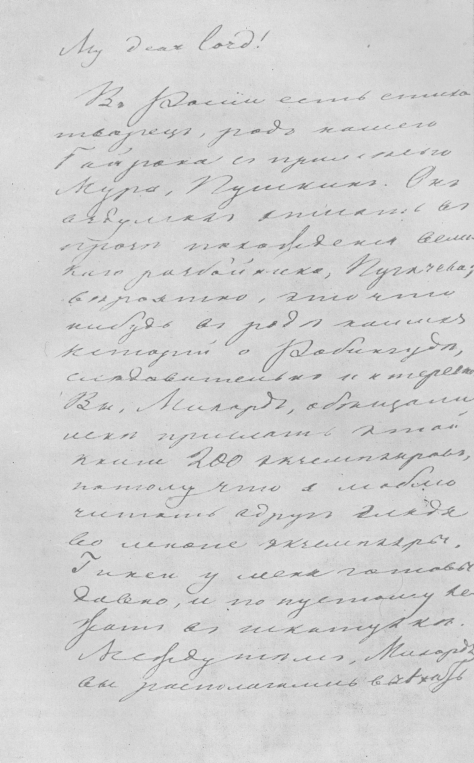 My dear lord!
Въ Россiи есть стихо
творецъ, родъ нашего
Байрона съ примѣсью
Мура, Пушкинъ. Онъ
вздумалъ описать въ
прозѣ похожденiя вели
каго разбойника, Пугачева,
вѣроятно, это что
нибудь въ родѣ нашихъ
исторiй о Робингудѣ,
слѣдовательно
Вы, Милордъ, обѣщали
мнѣ прислать этой
книги 200 экземпляровъ,
потому что я люблю
читать вдругъ глядя
во многiе экземпляры.
Гинеи у меня готовы
давно, и по пустому ле
жатъ въ шкатулкѣ.
Между тѣмъ, Милордъ,
вы располагались